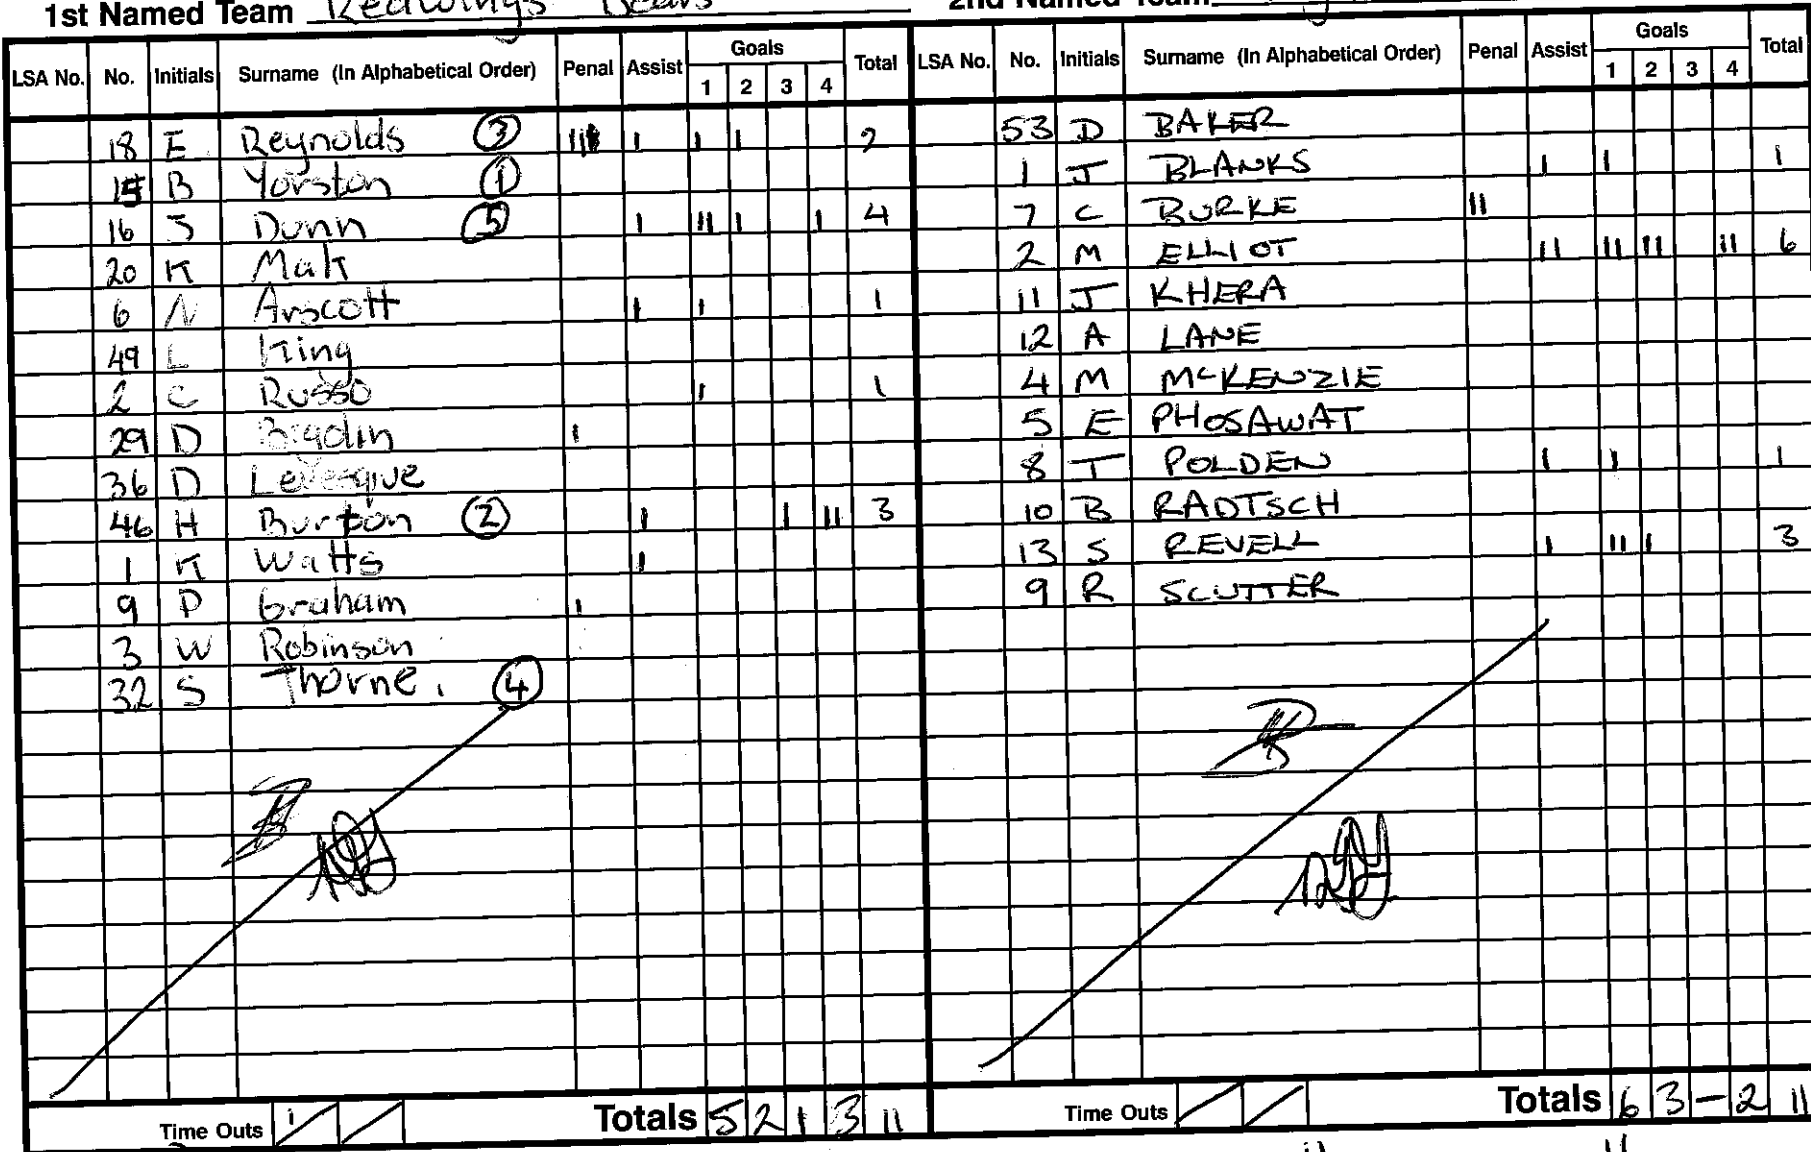 1st Named Team Redwings Bears 2nd Named Team
LSA No. No. Initials Surname (In Alphabetical Order) Penal Assist Goals 1 2 3 4 Total
18 E Reynolds ③ III I I I 2
15 B Yorston ①
16 J Dunn ⑤ I II I I 4
20 K Mak
6 N Arscott I I 1
49 L King
2 C Russo I 1
29 D I
36 D Levesque
46 H Burton ② I I II 3
1 K Watts I
9 P Graham I
3 W Robinson
32 S Thorne. ④
Time Outs 1 Totals 5 2 1 3 11
LSA No. No. Initials Surname (In Alphabetical Order) Penal Assist Goals 1 2 3 4 Total
53 D BAKER
1 J BLANKS I I 1
7 C BURKE II
2 M ELLIOT II II II II 6
11 J KHERA
12 A LANE
4 M McKENZIE
5 E PHOSAWAT
8 T POLDEN I I 1
10 B RADTSCH
13 S REVELL I II I 3
9 R SCUTTER
Time Outs Totals 6 3 - 2 11